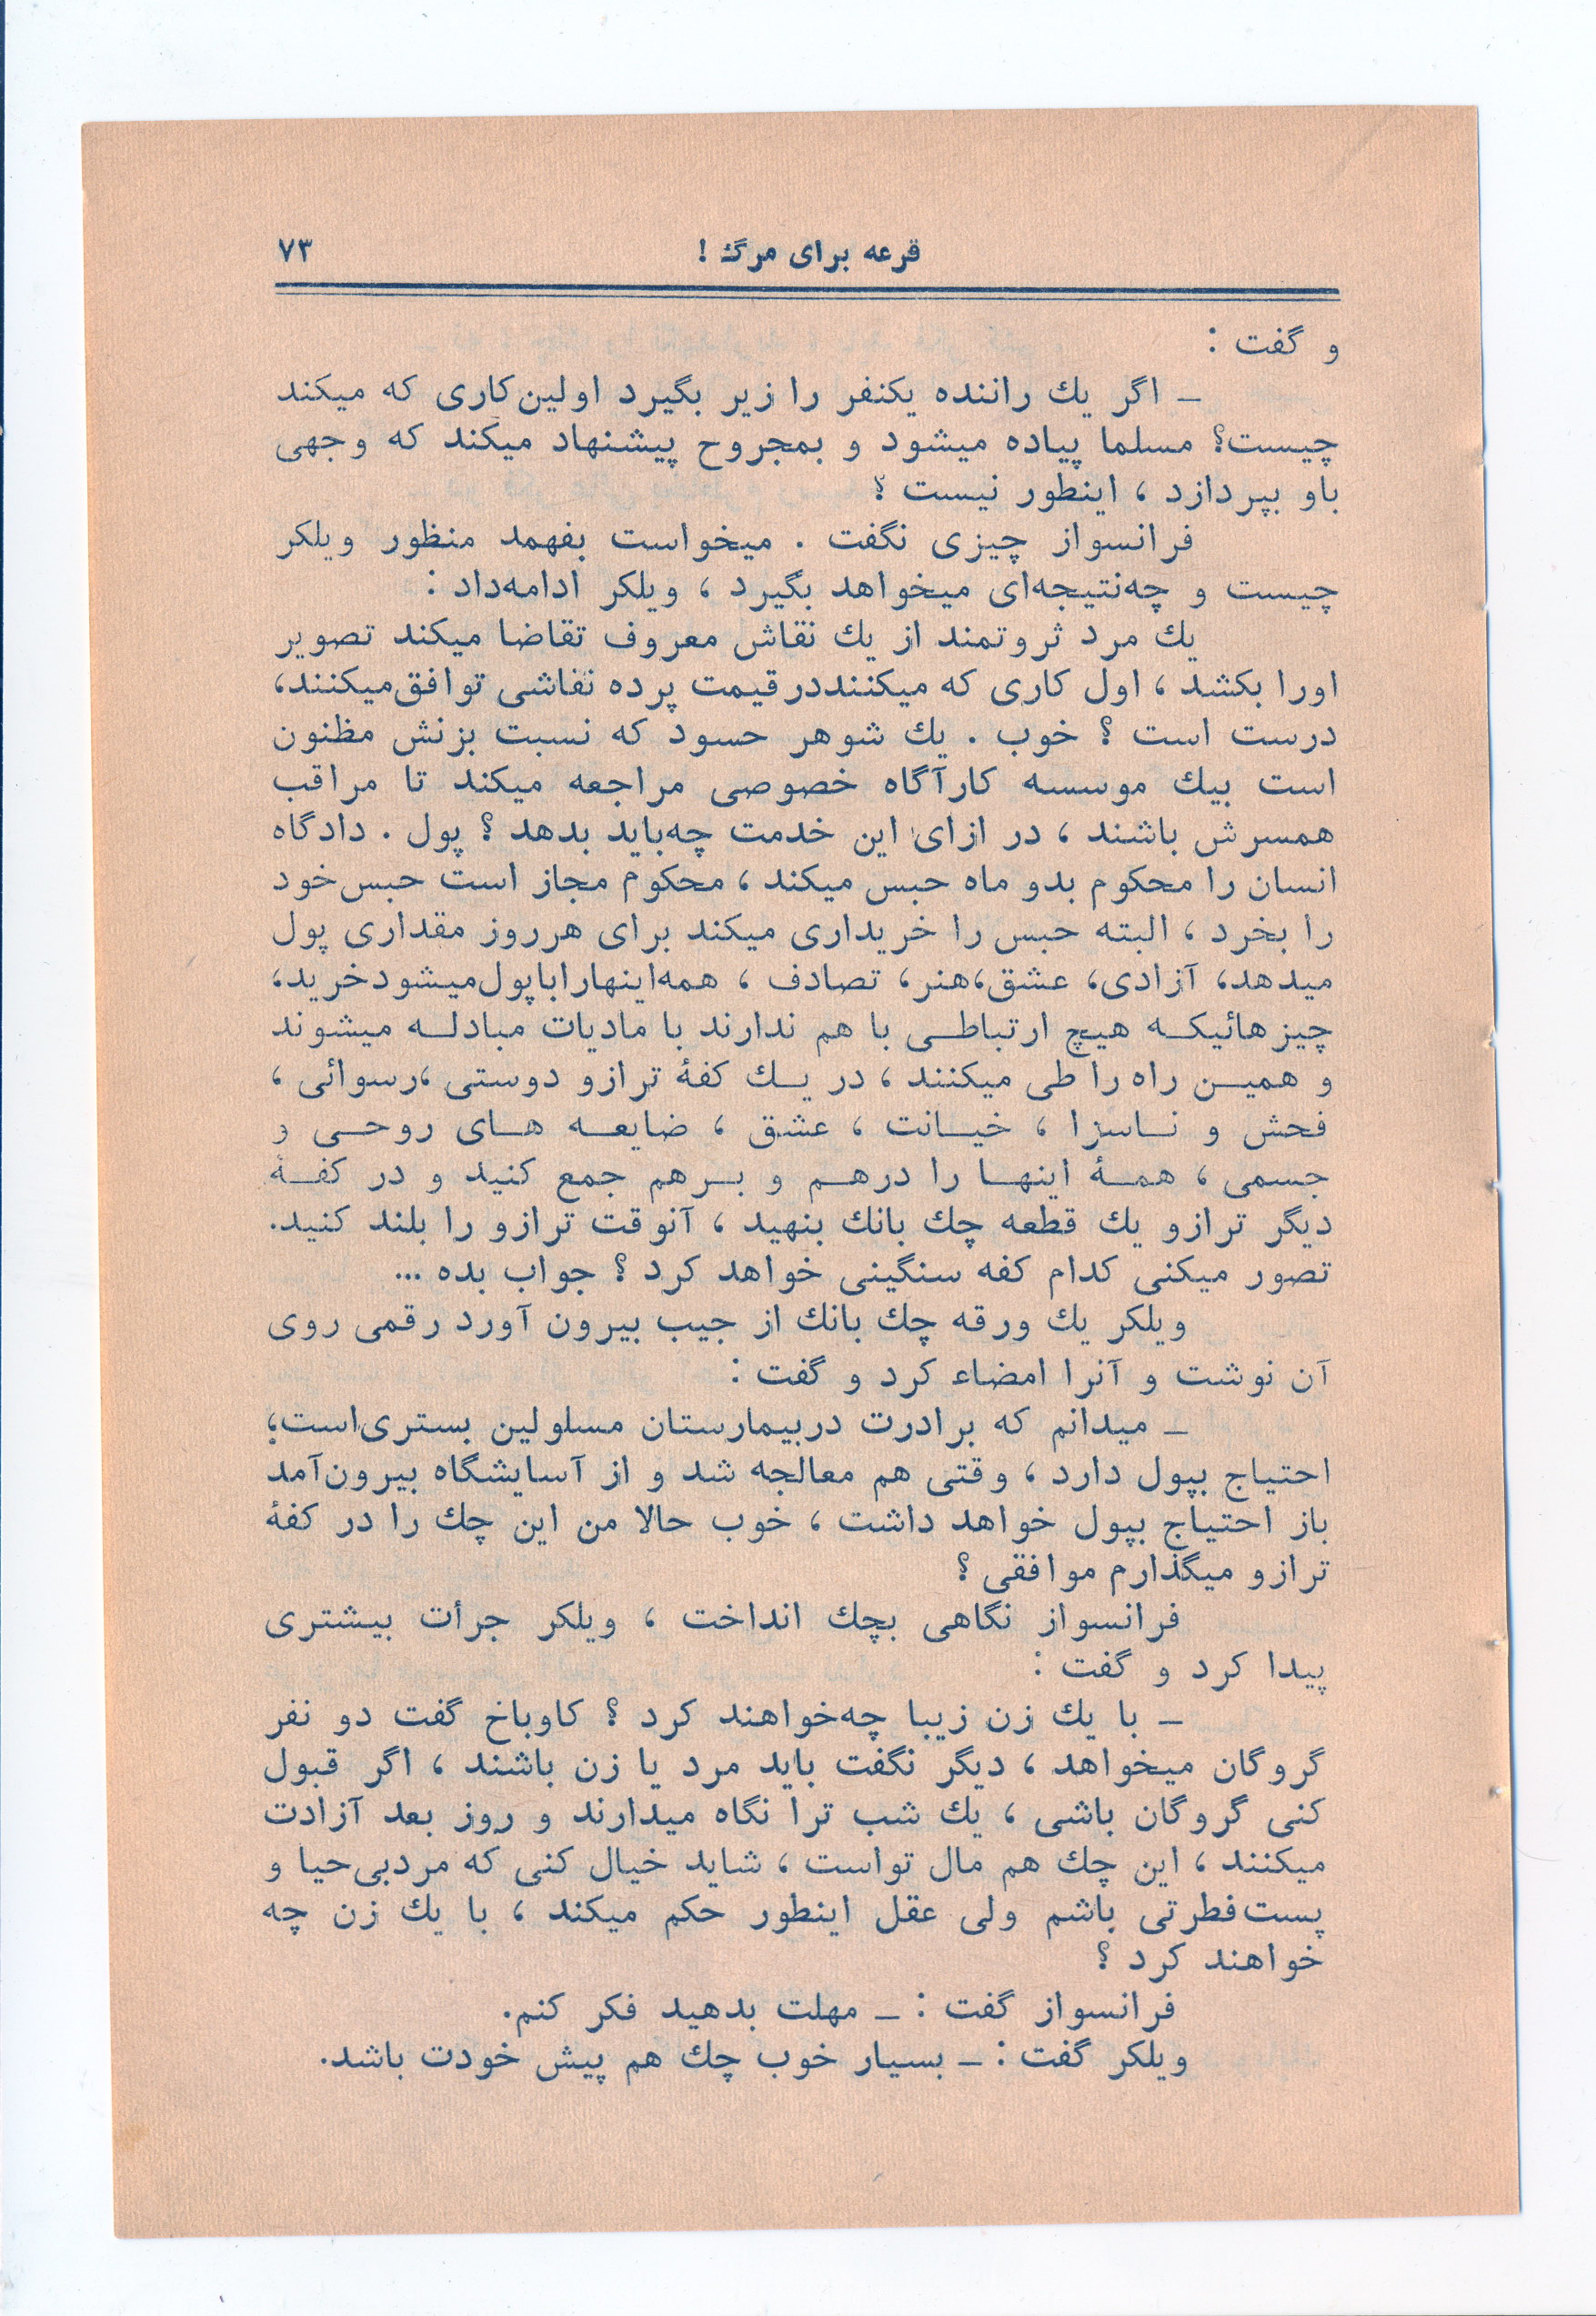 قرعه برای مرگ ! ۷۳
و گفت :
ـ اگر یك راننده یکنفر را زیر بگیرد اولین‌کاری که میکند
چیست؟ مسلما پیاده میشود و بمجروح پیشنهاد میکند که وجهی
باو بپردازد ، اینطور نیست ؟
فرانسواز چیزی نگفت . میخواست بفهمد منظور ویلکر
چیست و چه‌نتیجه‌ای میخواهد بگیرد ، ویلکر ادامه‌داد :
یك مرد ثروتمند از یك نقاش معروف تقاضا میکند تصویر
اورا بکشد ، اول کاری که میکننددرقیمت پرده نقاشی توافق‌میکنند،
درست است ؟ خوب . یك شوهر حسود که نسبت بزنش مظنون
است بیك موسسه کارآگاه خصوصی مراجعه میکند تا مراقب
همسرش باشند ، در ازای این خدمت چه‌باید بدهد ؟ پول . دادگاه
انسان را محکوم بدو ماه حبس میکند ، محکوم مجاز است حبس‌خود
را بخرد ، البته حبس را خریداری میکند برای هرروز مقداری پول
میدهد، آزادی، عشق،هنر، تصادف ، همه‌اینهاراباپول‌میشودخرید،
چیزهائیکـه هیـچ ارتباطـی با هم ندارند با مادیات مبادلـه میشوند
و همیـن راه را طی میکنند ، در یـك کفهٔ ترازو دوستی ،رسوائی ،
فحش و نـاسزا ، خیـانت ، عشق ، ضایعـه هـای روحـی و
جسمی ، همـهٔ اینهـا را درهـم و بـرهم جمع کنید و در کفـهٔ
دیگر ترازو یك قطعه چك بانك بنهید ، آنوقت ترازو را بلند کنید.
تصور میکنی کدام کفه سنگینی خواهد کرد ؟ جواب بده ...
ویلکر یك ورقه چك بانك از جیب بیرون آورد رقمی روی
آن نوشت و آنرا امضاء کرد و گفت :
ـ میدانم که برادرت دربیمارستان مسلولین بستری‌است،
احتیاج بپول دارد ، وقتی هم معالجه شد و از آسایشگاه بیرون‌آمد
باز احتیاج بپول خواهد داشت ، خوب حالا من این چك را در کفهٔ
ترازو میگذارم موافقی ؟
فرانسواز نگاهی بچك انداخت ، ویلکر جرأت بیشتری
پیدا کرد و گفت :
ـ با یك زن زیبا چه‌خواهند کرد ؟ کاوباخ گفت دو نفر
گروگان میخواهد ، دیگر نگفت باید مرد یا زن باشند ، اگر قبول
کنی گروگان باشی ، یك شب ترا نگاه میدارند و روز بعد آزادت
میکنند ، این چك هم مال تواست ، شاید خیال کنی که مردبی‌حیا و
پست‌فطرتی باشم ولی عقل اینطور حکم میکند ، با یك زن چه
خواهند کرد ؟
فرانسواز گفت : ـ مهلت بدهید فکر کنم.
ویلکر گفت : ـ بسیار خوب چك هم پیش خودت باشد.